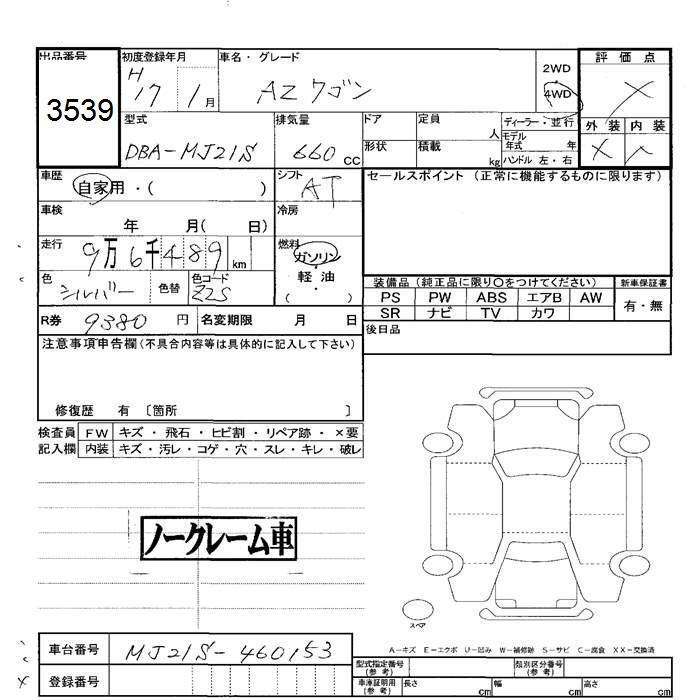 出品番号 初度登録年月 車名・グレード 評価点
3539 H17 1月 AZワゴン 2WD 4WD ×
型式 排気量 ドア 定員 人 ディーラー・並行 外装 内装
DBA-MJ21S 660cc 形状 積載 kg モデル年式 年 ハンドル 左・右 ×
車歴 シフト セールスポイント (正常に機能するものに限ります)
自家用・( ) AT
車検 年 月( 日) 冷房
走行 燃料
9万6千489km ガソリン
色 色替 色コード 軽油
シルバー Z2S ( )
装備品 (純正品に限り○をつけてください) 新車保証書
PS PW ABS エアB AW 有・無
SR ナビ TV カワ
R券 9380円 名変期限 月 日
後日品
注意事項申告欄(不具合内容等は具体的に記入して下さい)
修復歴 有 〔箇所 〕
検査員 FW キズ・飛石・ヒビ割・リペア跡・×要
記入欄 内装 キズ・汚レ・コゲ・穴・スレ・キレ・破レ
ノークレーム車
スペア
A-キズ E-エクボ U-凹み W-補修跡 S-サビ C-腐食 XX-交換済
車台番号 MJ21S-460153
登録番号
型式指定番号(参考) 類別区分番号(参考)
車庫証明用(参考) 長さ cm 幅 cm 高さ cm